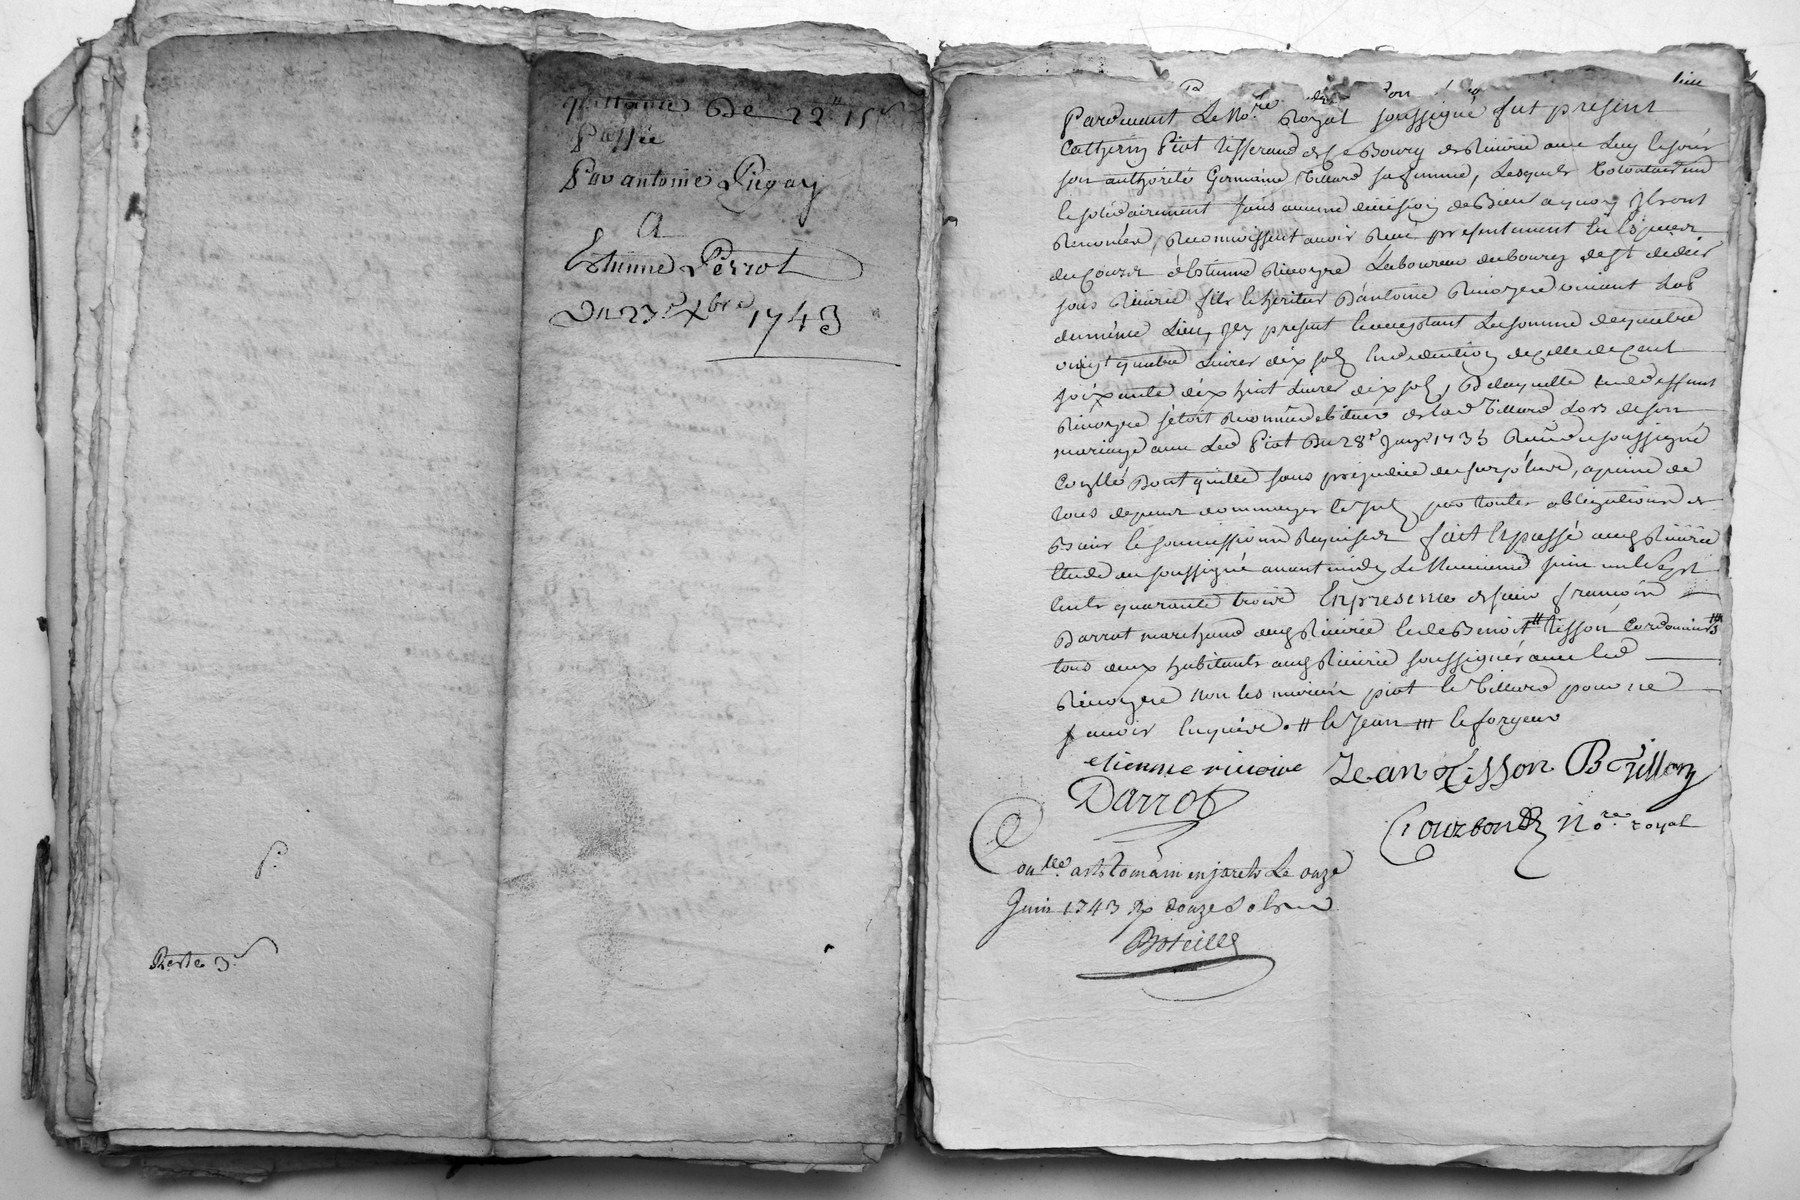 quittance De 22ᵗᵗ 15ˢ
passée
Par antoine Pigay
A
Estienne Perrot
Du 23ᵉ Xbre 1743
P.
Reste 3ᵗ
Pardevant Le No.re Royal soussigné fut present
Catherin Piot tisserand de ce Bourg de Riverie avec Luy
son authorité Germaine Villard sa femme, Lesquels
solidairement sans aucune division de Bien a quoy Ils ont
Renoncé, Reconnoissent avoir Reçu presentement En Espece
du Cours d'Estienne Rivoyre Laboureur du bourg de St didier
sous Riverie fils et heritier D'antoine Rivoyre vivant hab
du même Lieu, Icy present et acceptant La somme de quatre
vingt quatre Livres dix sols En deduction de celle de Cent
soixante dix huit Livres dix sols, De laquelle led deffunt
Rivoyre s'etoit Reconnu debiteur de lad Villard Lors de son
mariage avec Led Piot Du 28e Janv. 1735 Reçu du soussigné
Con.llé Dont quitte sans prejudice du surplus, a peine de
tous depens dommages Et par toutes obligations de
Biens et soumissions Requises fait et passé aud Riverie
Etude du soussigné avant midy Le Neuvieme Juin mil sept
Cents quarante trois En presence de sieur françois
Darrot marchand aud Riverie et de Benoit tisson Cordonnier
tous deux habitants aud Riverie soussignés avec led
Rivoyre non les mariés piot et Villard pour ne
savoir Enquis. # et Jean ### et forgeur
etienne rivoire Jean tisson B Villon
Darrot
Courbon No.re royal
Con.llé a st Romain en jarets Le onze
Juin 1743 Rx douze sols
Boteille